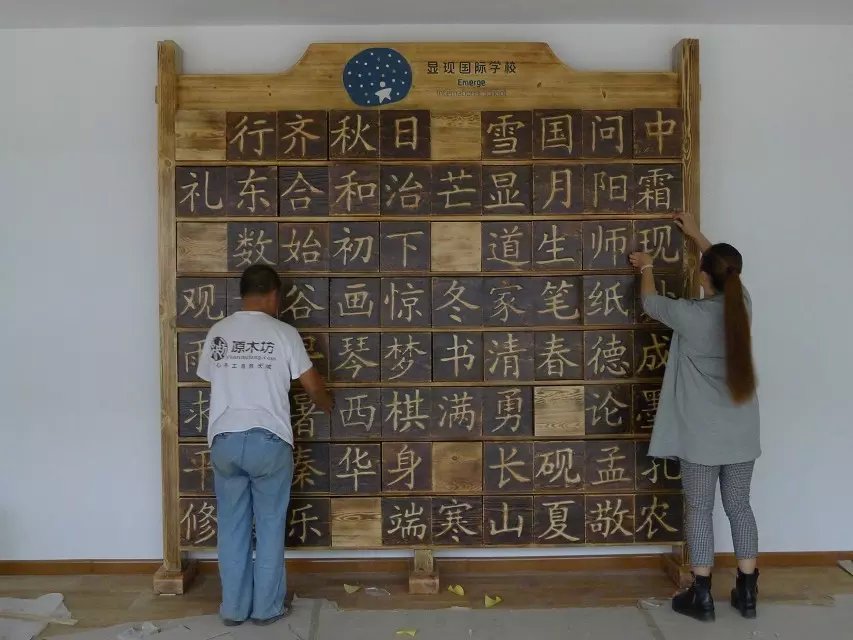 显现国际学校
Emerge
International School
行齐秋日雪国问中
礼东合和治芒显月阳霜
数始初下道生师现
观谷画惊冬家笔纸
雨琴梦书清春德成
暑西棋满勇论墨
平秦华身长砚孟孔
修乐端寒山夏敬农
原木坊
心手工自然天成